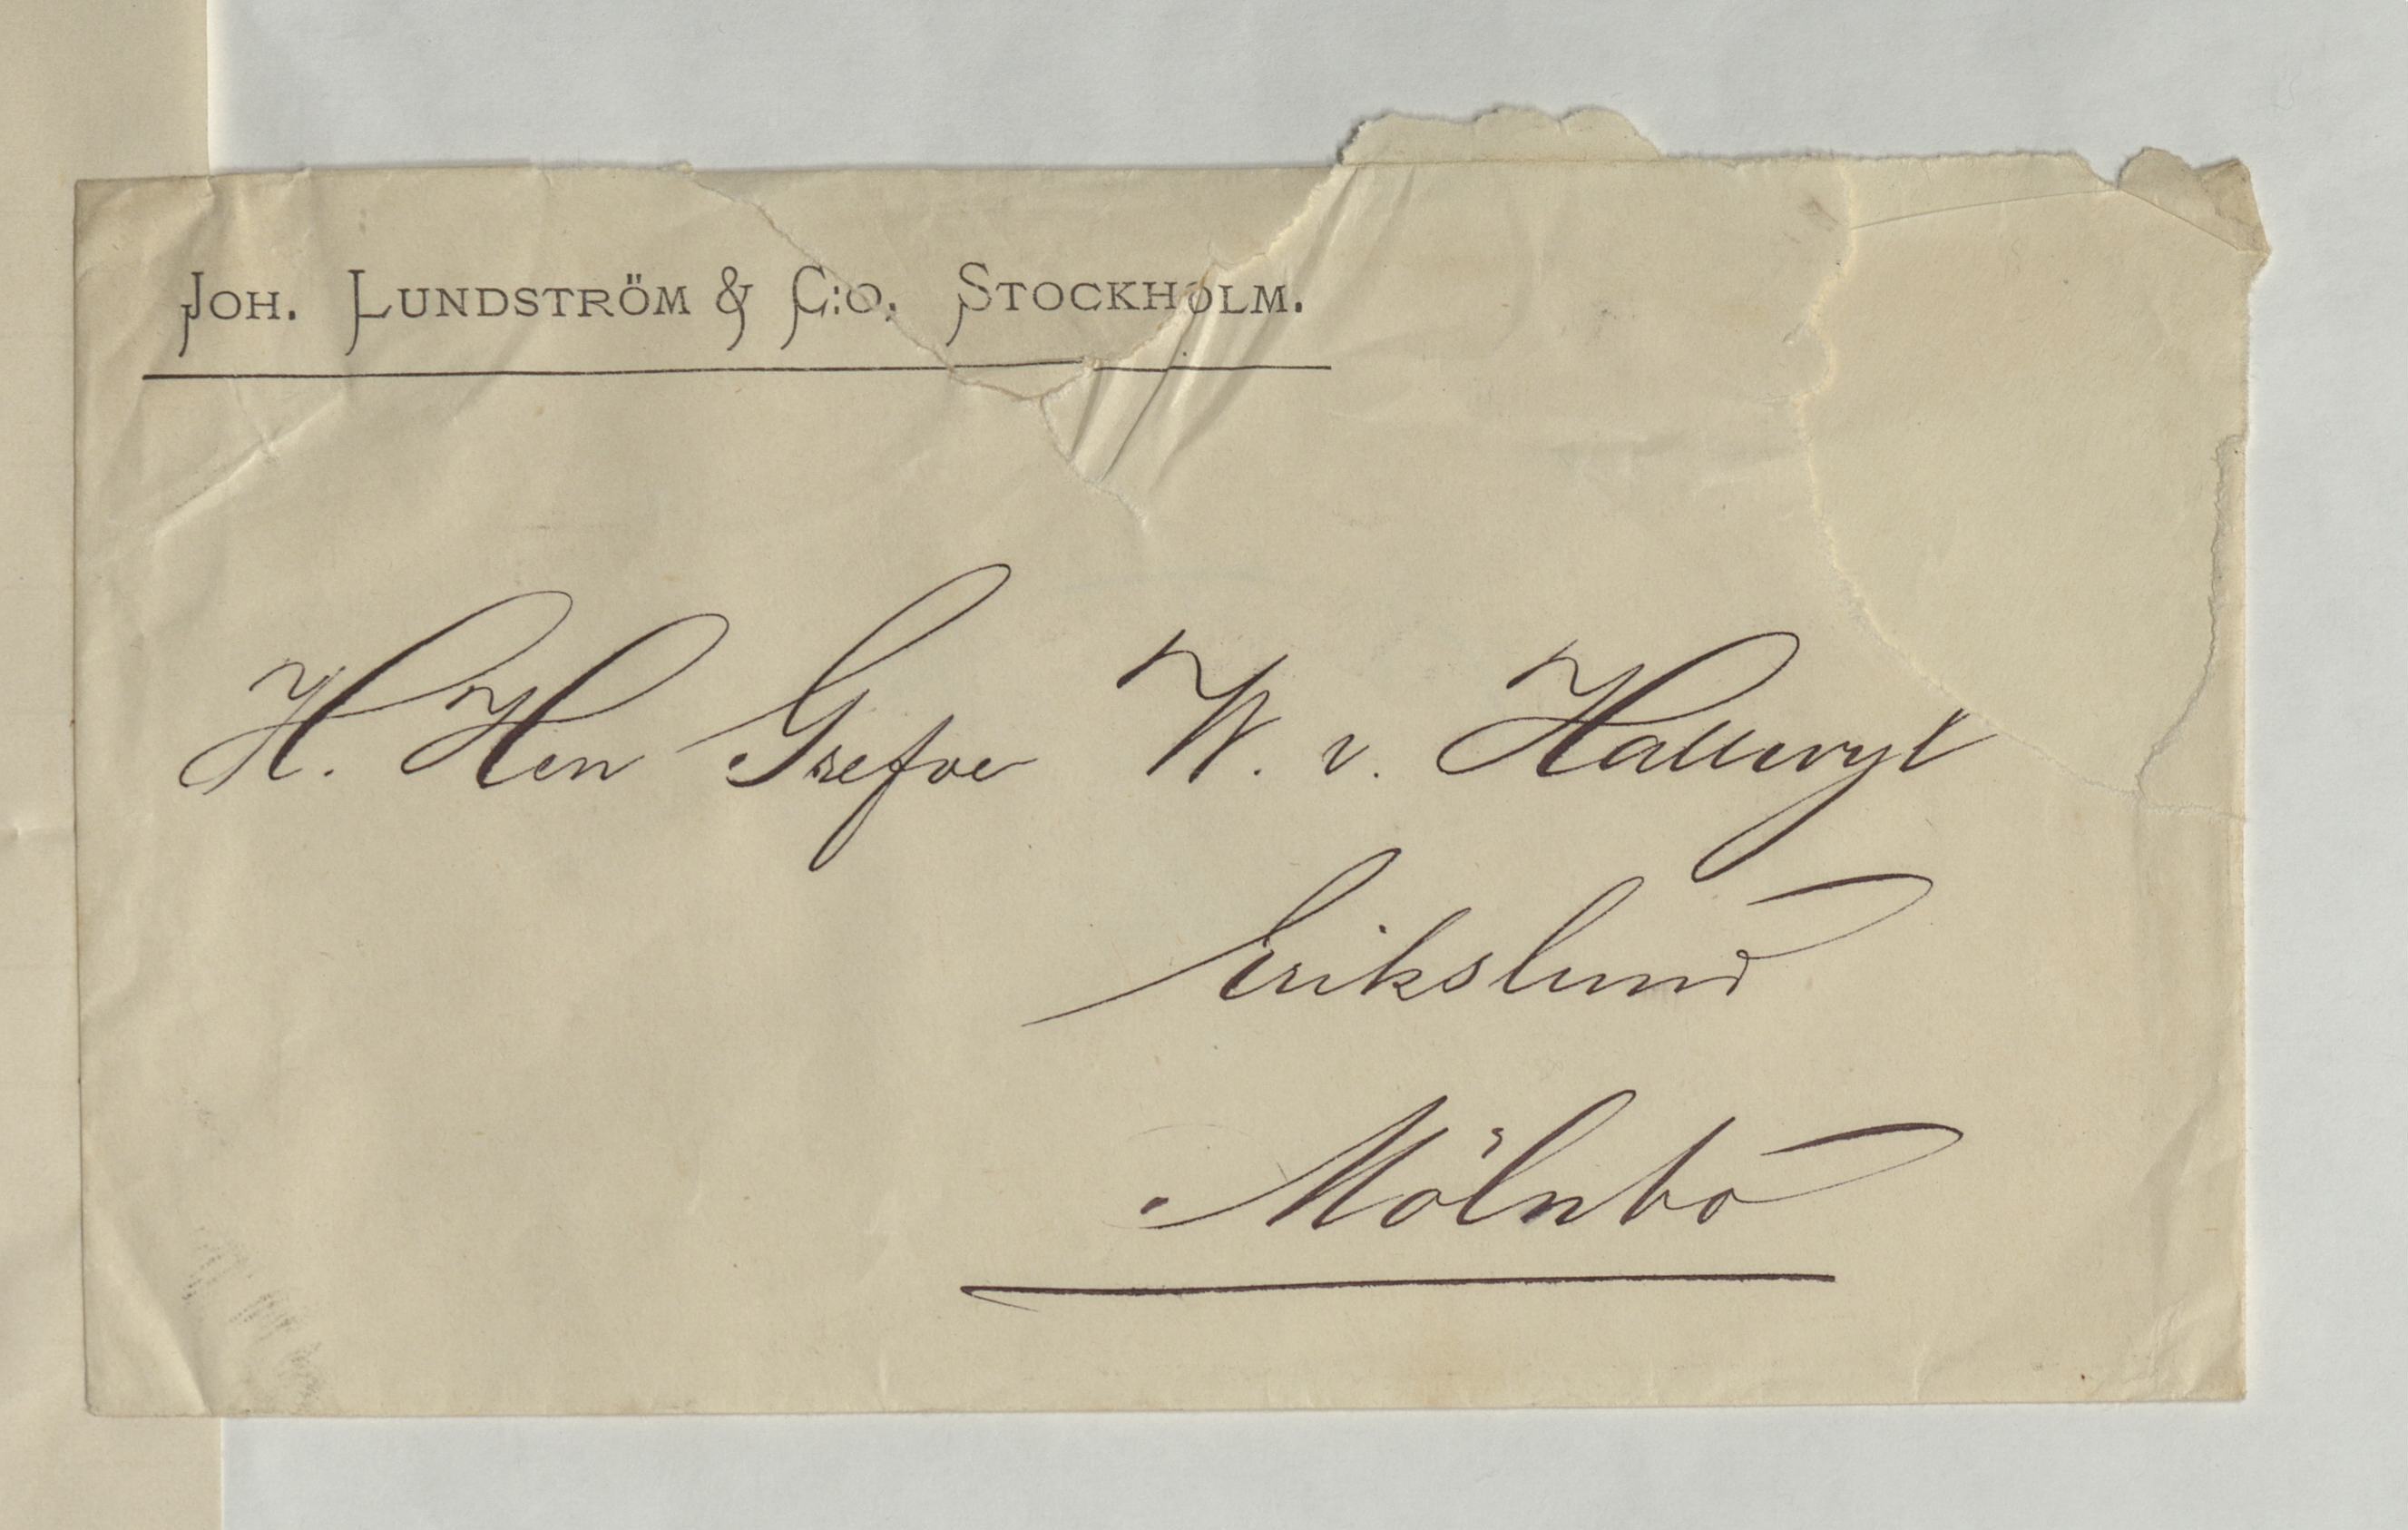 JOH. LUNDSTRÖM & C:O. STOCKHOLM.
H. Herr Grefve W. v. Hallwyl
Erikslund
Mölnbo